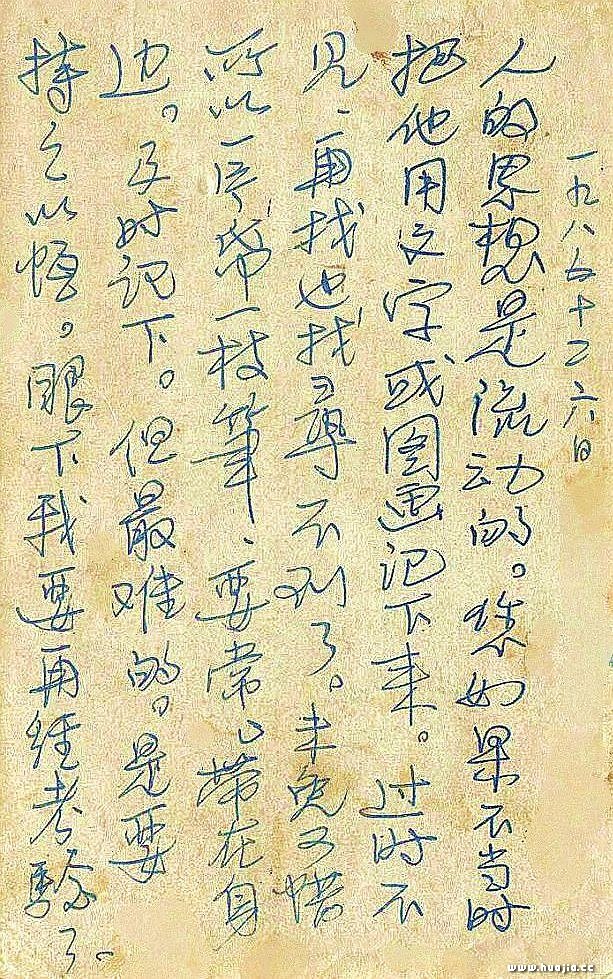 一九八五十二六日
人的思想是流动的。您如果不当时
把他用文字或图画记下来。过时不
见、再找也找尋不到了。未免可惜
所以一片帋一枝筆、要常々带在身
边。及时记下。但最难的。是要
持之以恒。眼下我要再経考驗了。
www.huajia.cc